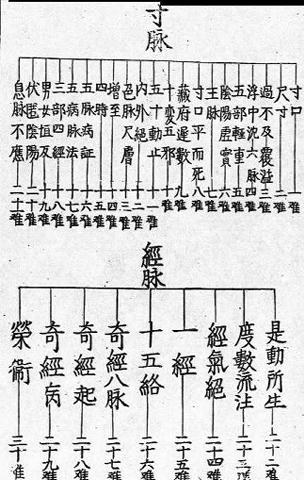 寸脉
寸口 一難
尺寸 二難
過不及覆溢 三難
浮中沈六脉 四難
五部輕重 五難
陰陽虛實 六難
王脉 七難
寸口平而死 八難
藏府遲數 九難
十變五邪 十難
五十動止 十一難
內外絕 十二難
色脉尺膚 十三難
增至 十四難
四時 十五難
五脉病証 十六難
五病脉法 十七難
三部四經 十八難
男女恒反 十九難
伏匿陰陽 二十難
息脉不應 二十一難
經脉
是動所生 二十二難
度數流注 二十三難
經氣絕 二十四難
一經 二十五難
十五絡 二十六難
奇經八脉 二十七難
奇經起 二十八難
奇經病 二十九難
榮衛 三十難